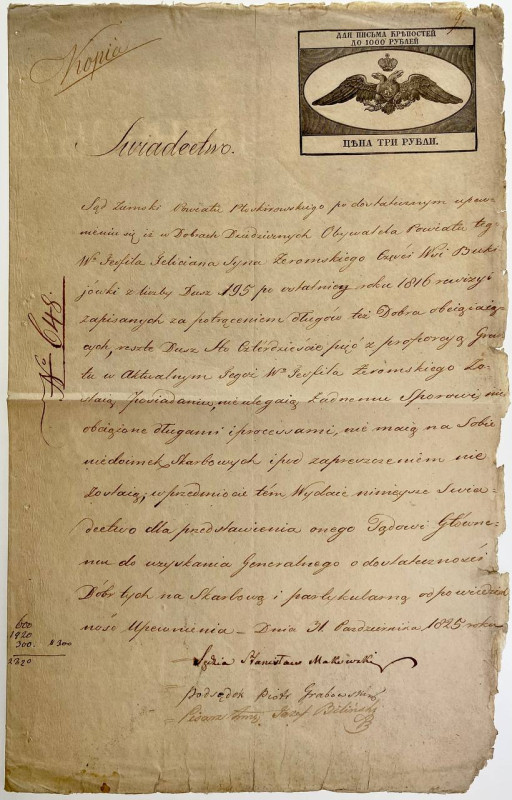 Kopia
ДЛЯ ПИСЬМА КРѢПОСТЕЙ
ДО 1000 РУБЛЕЙ
ЦѢНА ТРИ РУБЛИ.
Swiadectwo.
Sąd Zamski Powiatu Płoskirowskiego po dostatecznym upew-
nieniu się iż w Dobrach Dziedzicznych Obywatela Powiatu teg
Wo Teofila Felicyana Syna Żeromskiego Części Wsi Buki
jówki z liczby Dusz 195 po ostatniey roku 1816 rewizyi
zapisanych za potrąceniem długów też Dobra obciążaią-
cych, reszta Dusz Sto Czterdzieście pięć z proporcyą Gru
tu w Aktualnym Tegoż Wo Teofila Żeromskiego Zo-
staią Posiadaniu, nieulegaią Żadnemu Sporowi, nie
obciążone długami i processami, nie maią na Sobie
niedoimek Skarbowych i pod zapreszczeniem nie
Zostaią; w przedmiocie tém Wydaie ninieysze Swia-
dectwo dla przedstawienia onego Sądowi Główne-
mu do uzyskania Generalnego o dostateczności
Dóbr tych na Skarbową i partykularną odpowiedzial
ność Upewnienia – Dnia 31 Pazdziernika 1825 roku
Sędzia Stanisław Makowski
Podsądek Piotr Grabowski
Pisarz Józef Biliński
No 648.
600
1920
300. 300
2820